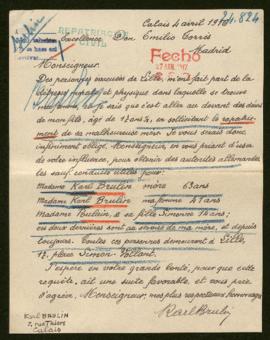 24.824
Calais 4 avril 1917
REPATRIACION
CIVIL
Excellence Don Emilio Torrès
Madrid
Fecho
Monseigneur.
Des personnes évacuées de Lille, m'ont fait part de la
détresse morale et physique dans laquelle se trouve
ma famille. Je sais que c'est aller au devant des désirs
de mon fils, âgé de 12 ans ½, en sollicitant le rapatrie-
ment de sa malheureuse mère. Je vous serai donc
infiniment obligé, Monseigneur, en vous priant d'user
de votre influence, pour obtenir des autorités allemandes
les sauf conduits utiles pour:
Madame Karl Brulin mère 63 ans
Madame Karl Brulin ma femme 41 ans
Madame Poulain, & sa fille Simonne 14 ans;
ces deux dernières sont au service de ma mère, et depuis
toujours. Toutes ces personnes demeurent à Lille,
12, place Simon Vollant.
J'espère en votre grande bonté, pour que cette
requête, ait une suite favorable, et vous prie
d'agréer, Monseigneur, mes plus respectueux hommages
Karl Brulin
Karl BRULIN
7, rue Thiers
Calais